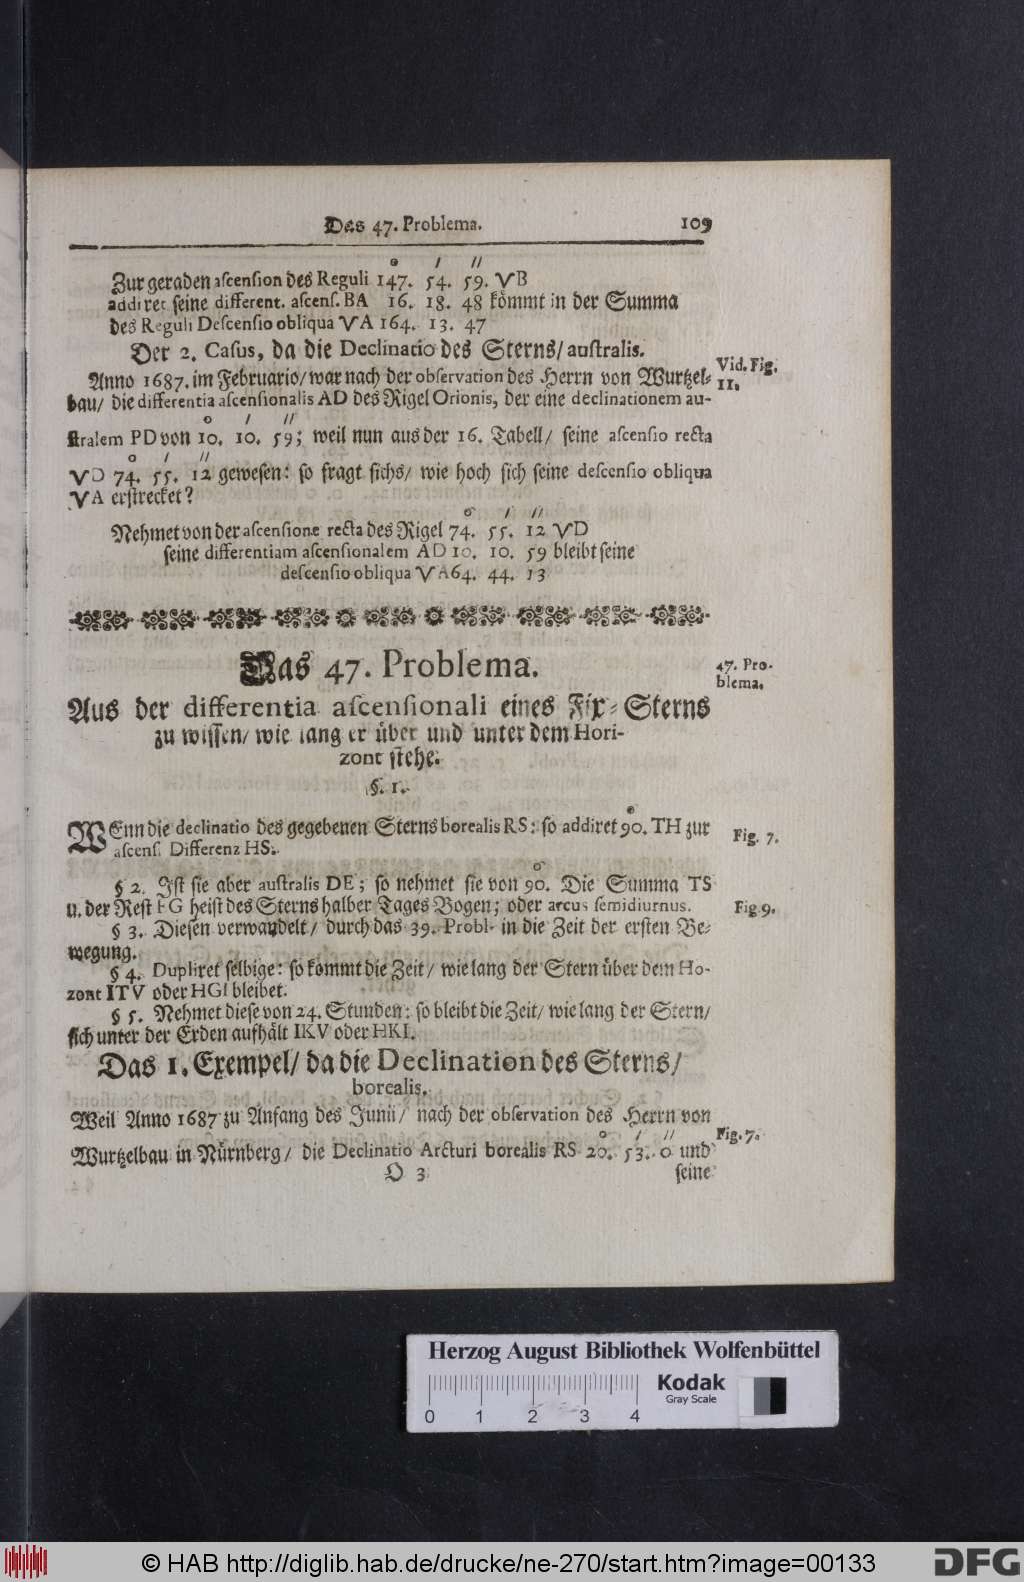 Das 47. Problema. 109
° ′ ″
Zur geraden ascension des Reguli 147. 54. 59. VB
addiret seine different. ascens. BA 16. 18. 48 kömmt in der Summa
des Reguli Descensio obliqua VA 164. 13. 47
Der 2. Casus, da die Declinatio des Sterns/ australis.
Vid. Fig.
11.
Anno 1687. im Februario/ war nach der observation des Herrn von Wurtzel-
bau/ die differentia ascensionalis AD des Rigel Orionis, der eine declinationem au-
° ′ ″
stralem PD von 10. 10. 59; weil nun aus der 16. Tabell/ seine ascensio recta
° ′ ″
VD 74. 55. 12 gewesen: so fragt sichs/ wie hoch sich seine descensio obliqua
VA erstrecket?
° ′ ″
Nehmet von der ascensione recta des Rigel 74. 55. 12 VD
seine differentiam ascensionalem AD 10. 10. 59 bleibt seine
descensio obliqua VA 64. 44. 13
Das 47. Problema.
47. Pro-
blema.
Aus der differentia ascensionali eines Fix-Sterns
zu wissen/ wie lang er über und unter dem Hori-
zont stehe.
§. 1.
°
WEnn die declinatio des gegebenen Sterns borealis RS: so addiret 90. TH zur
Fig. 7.
ascens. Differenz HS.
°
§ 2. Ist sie aber australis DE; so nehmet sie von 90. Die Summa TS
u. der Rest FG heist des Sterns halber Tages Bogen; oder arcus semidiurnus.
Fig 9.
§ 3. Diesen verwandelt/ durch das 39. Probl. in die Zeit der ersten Be-
wegung.
§ 4. Dupliret selbige: so kommt die Zeit/ wie lang der Stern über dem Ho-
zont ITV oder HGI bleibet.
§ 5. Nehmet diese von 24. Stunden: so bleibt die Zeit/ wie lang der Stern/
sich unter der Erden aufhält IKV oder HKI.
Das 1. Exempel/ da die Declination des Sterns/
borealis.
Weil Anno 1687 zu Anfang des Junii/ nach der observation des Herrn von
Fig. 7.
° ′ ″
Wurtzelbau in Nürnberg/ die Declinatio Arcturi borealis RS 20. 53. 0 und
O 3 seine
Herzog August Bibliothek Wolfenbüttel
Kodak
Gray Scale
0 1 2 3 4
© HAB http://diglib.hab.de/drucke/ne-270/start.htm?image=00133
DFG